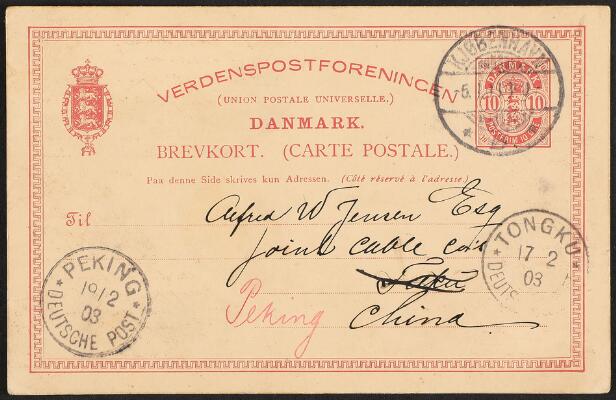 VERDENSPOSTFORENINGEN
(UNION POSTALE UNIVERSELLE.)
DANMARK.
BREVKORT. (CARTE POSTALE.)
Paa denne Side skrives kun Adressen. (Côté réservé à l'adresse.)
KJØBENHAVN
5.
DANMARK
10 10
POSTFRIM 10 ØRE
Til
Alfred W Jensen Esq
Joint Cable Co's
Taku
Peking China
PEKING
19/2
03
DEUTSCHE POST
TONGKU
17 2
03
DEUTS